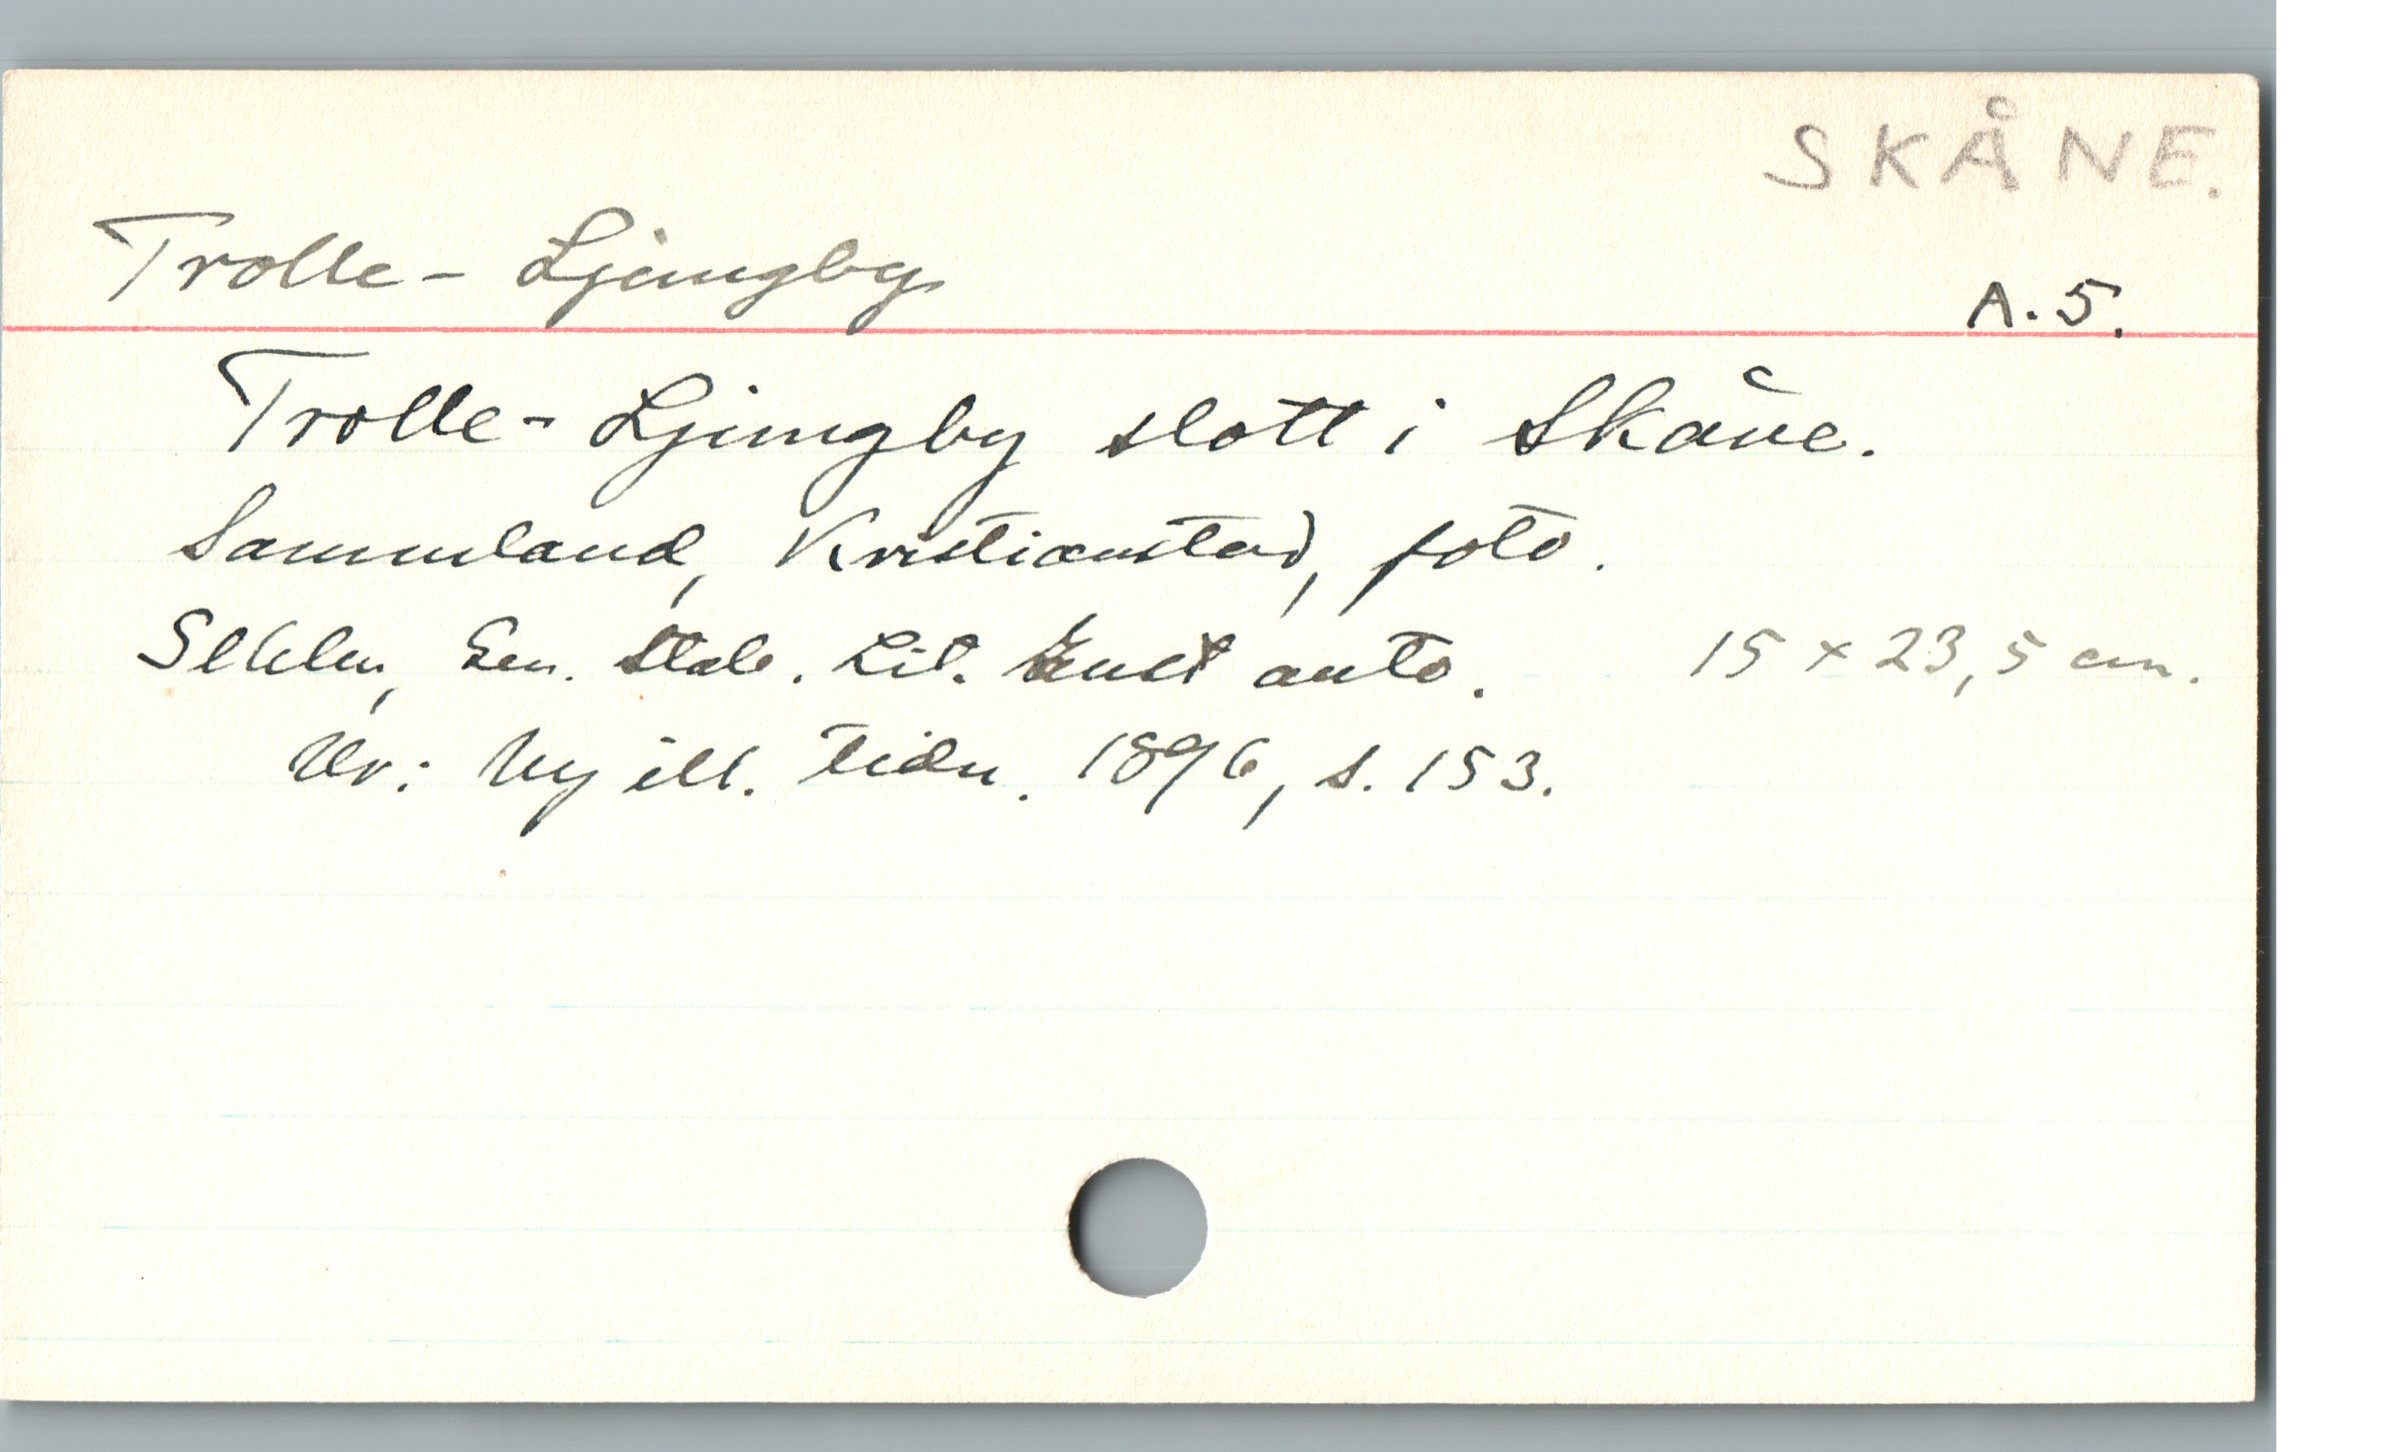 SKÅNE.
Trolle-Ljungby
A.5.
Trolle-Ljungby slott i Skåne.
Sammland, Kristianstad, foto.
Sthlm, Gen. Stab. Lit. Inst auto. 15 x 23,5 cm.
Ur: Ny ill. tidn. 1896, s. 153.